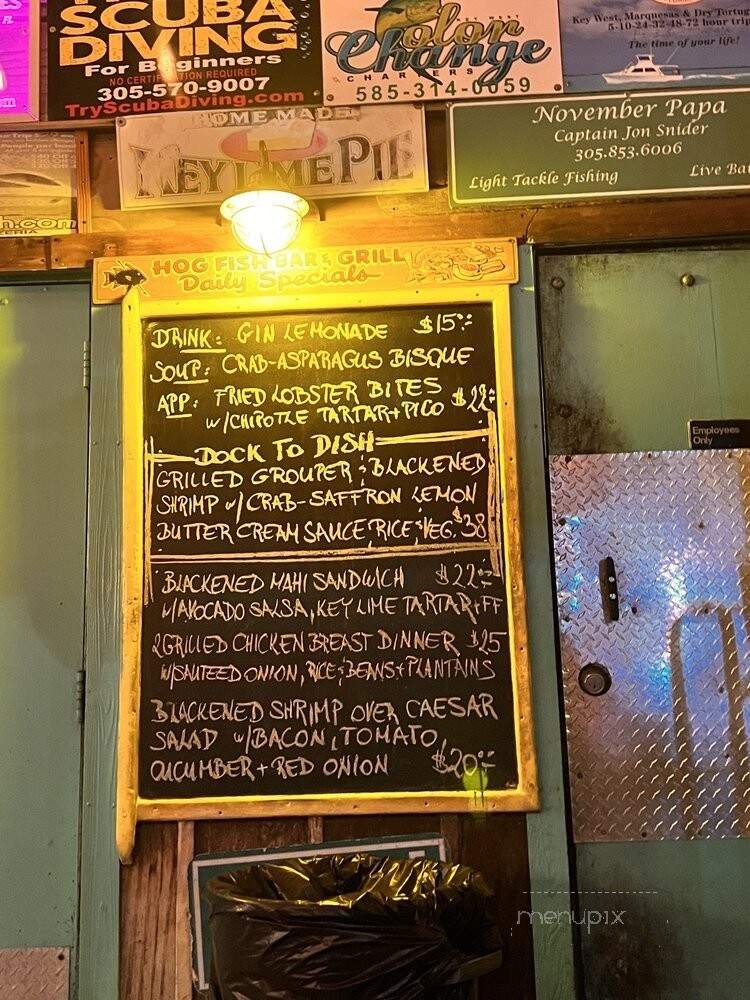 SCUBA
DIVING
For Beginners
NO CERTIFICATION REQUIRED
305-570-9007
TryScubaDiving.com
Color
Change
CHARTERS
585-314-0059
Key West, Marquesas & Dry Tortug
5-10-24-32-48-72 hour tri
The time of your life!
HOME MADE
KEY LIME PIE
November Papa
Captain Jon Snider
305.853.6006
Light Tackle Fishing
Live Bai
HOG FISH BAR & GRILL
Daily Specials
DRINK: GIN LEMONADE $15
SOUP: CRAB-ASPARAGUS BISQUE
APP: FRIED LOBSTER BITES
W/CHIPOTLE TARTAR+PICO $22
DOCK TO DISH
GRILLED GROUPER & BLACKENED
SHRIMP W/ CRAB-SAFFRON LEMON
BUTTER CREAM SAUCE RICE & VEG. $38
BLACKENED MAHI SANDWICH $22
W/AVOCADO SALSA, KEY LIME TARTAR+FF
2GRILLED CHICKEN BREAST DINNER $25
W/SAUTEED ONION, RICE & BEANS + PLANTAINS
BLACKENED SHRIMP OVER CAESAR
SALAD W/BACON, TOMATO,
CUCUMBER + RED ONION $20
Employees
Only
menupix